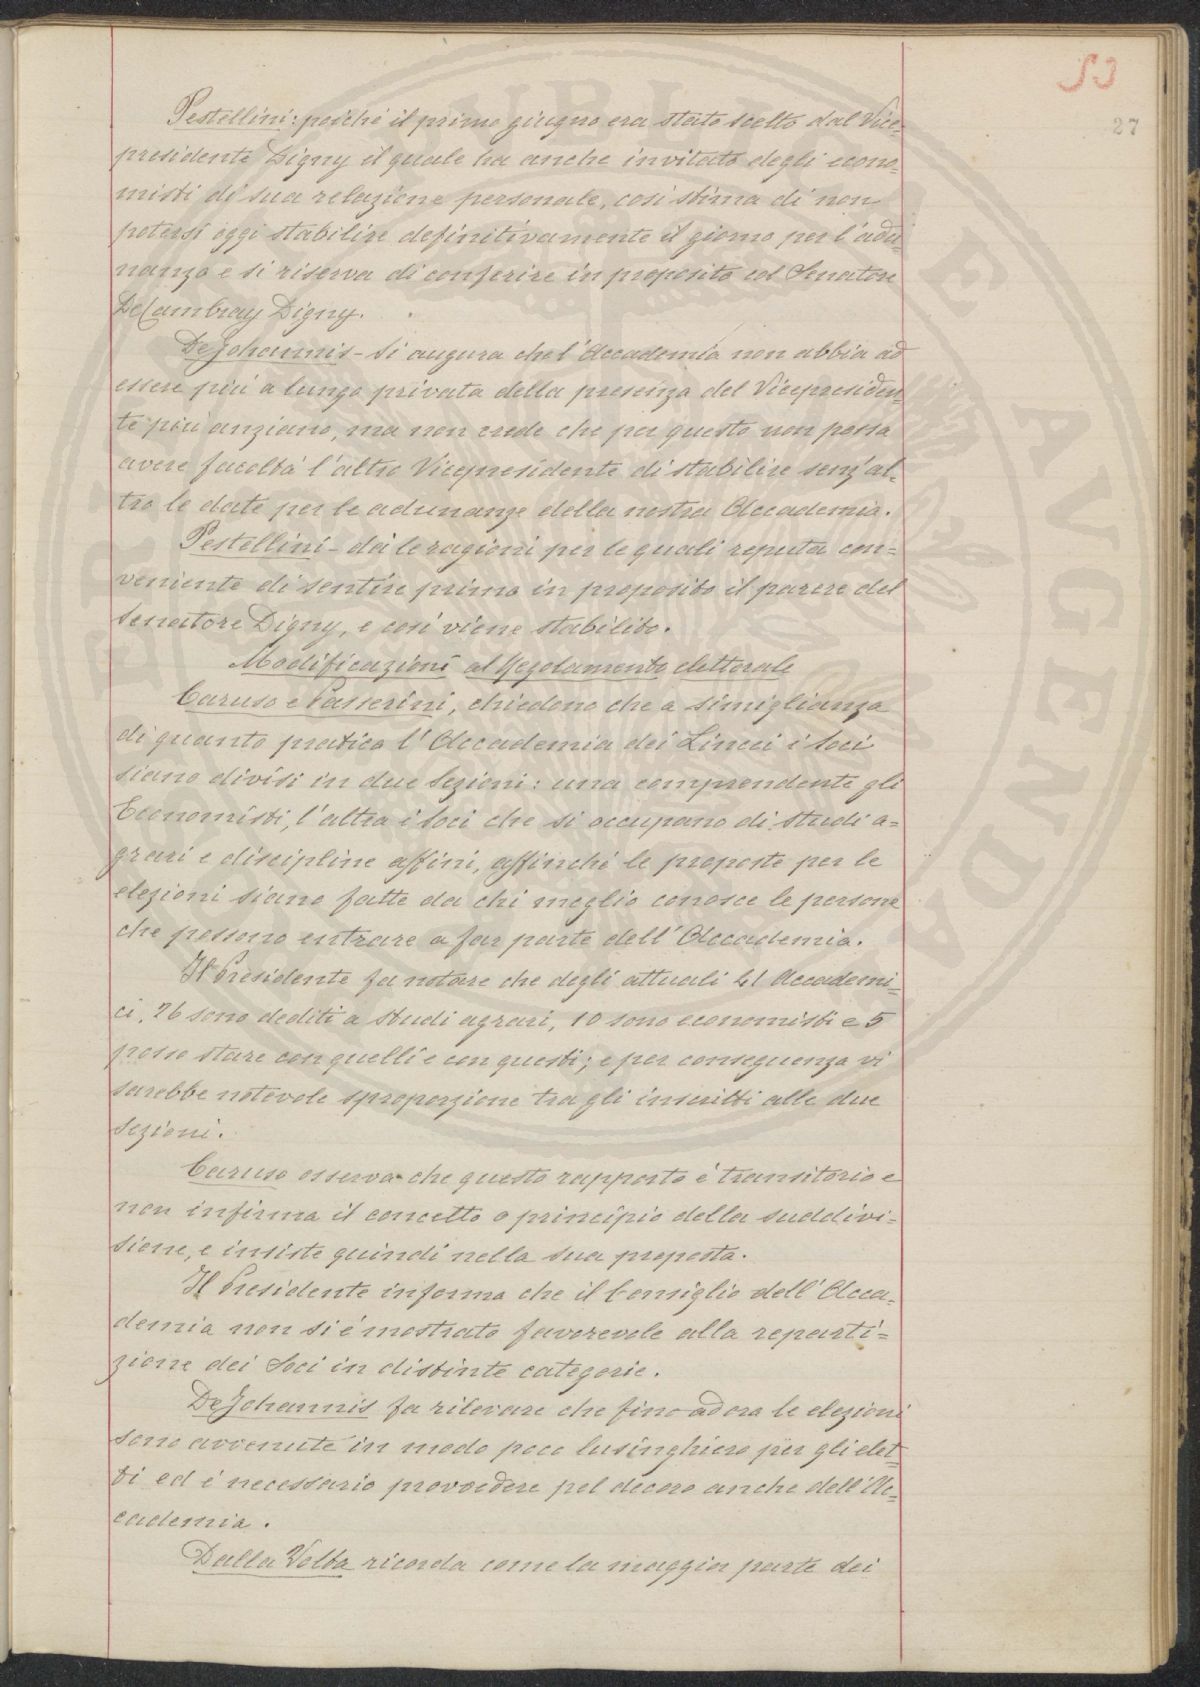 53
27
Pestellini: poiché il primo giugno era stato scelto dal Vice=
presidente Digny il quale ha anche invitato degli econo=
misti di sua relazione personale, così stima di non
potersi oggi stabilire definitivamente il giorno per l'adu=
nanza e si riserva di conferire in proposito col Senatore
De Cambray Digny.
De Johannis - Si augura che l'Accademia non abbia ad
essere più a lungo privata della presenza del Vicepresiden=
te più anziano, ma non crede che per questo non possa
avere facoltà l'altro Vicepresidente di stabilire senz'al=
tro le date per le adunanze della nostra Accademia.
Pestellini - dà le ragioni per le quali reputa con=
veniente di sentire prima in proposito il parere del
Senatore Digny, e così viene stabilito.
Modificazioni al Regolamento elettorale
Caruso e Passerini, chiedono che a simiglianza
di quanto pratica l'Accademia dei Lincei i Soci
siano divisi in due Sezioni: una comprendente gli
Economisti, l'altra i Soci che si occupano di studi a=
grari e discipline affini, affinché le proposte per le
elezioni siano fatte da chi meglio conosce le persone
che possono entrare a far parte dell'Accademia.
Il Presidente fa notare che degli attuali 41 Accademi=
ci, 26 sono dediti a studi agrari, 10 sono economisti e 5
posso stare con quelli e con questi; e per conseguenza vi
sarebbe notevole sproporzione tra gli inscritti alle due
Sezioni.
Caruso osserva che questo rapporto è transitorio e
non infirma il concetto o principio della suddivi=
sione, e insiste quindi nella sua proposta.
Il Presidente informa che il Consiglio dell'Acca=
demia non si è mostrato favorevole alla reparti=
zione dei Soci in distinte categorie.
De Johannis fa rilevare che fino adora le elezioni
sono avvenute in modo poco lusinghiero per gli elet=
ti ed è necessario provvedere pel decoro anche dell'Ac=
cademia.
Dalla Volta ricorda come la maggior parte dei